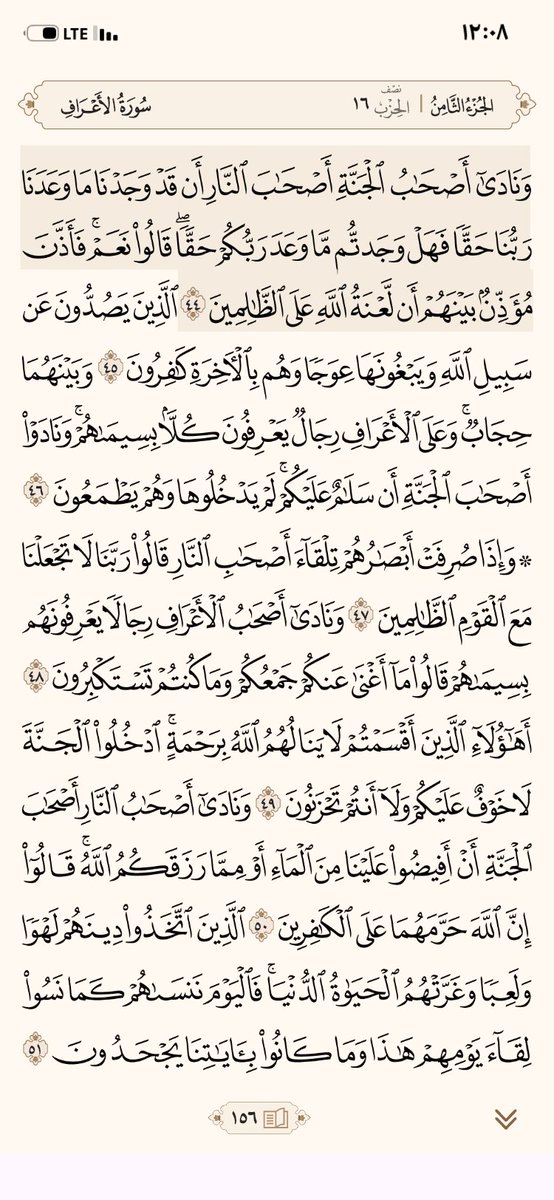 LTE ١٢:٠٨
الجُزْءُ الثَّامِنُ | نصْف الحِزْب ١٦ سُورَةُ الأَعْرَافِ
وَنَادَىٰٓ أَصْحَٰبُ ٱلْجَنَّةِ أَصْحَٰبَ ٱلنَّارِ أَن قَدْ وَجَدْنَا مَا وَعَدَنَا
رَبُّنَا حَقًّا فَهَلْ وَجَدتُّم مَّا وَعَدَ رَبُّكُمْ حَقًّا ۖ قَالُوا۟ نَعَمْ ۚ فَأَذَّنَ
مُؤَذِّنٌۢ بَيْنَهُمْ أَن لَّعْنَةُ ٱللَّهِ عَلَى ٱلظَّٰلِمِينَ ٤٤ ٱلَّذِينَ يَصُدُّونَ عَن
سَبِيلِ ٱللَّهِ وَيَبْغُونَهَا عِوَجًا وَهُم بِٱلْءَاخِرَةِ كَٰفِرُونَ ٤٥ وَبَيْنَهُمَا
حِجَابٌ ۚ وَعَلَى ٱلْأَعْرَافِ رِجَالٌ يَعْرِفُونَ كُلًّۢا بِسِيمَىٰهُمْ ۚ وَنَادَوْا۟
أَصْحَٰبَ ٱلْجَنَّةِ أَن سَلَٰمٌ عَلَيْكُمْ ۚ لَمْ يَدْخُلُوهَا وَهُمْ يَطْمَعُونَ ٤٦
* وَإِذَا صُرِفَتْ أَبْصَٰرُهُمْ تِلْقَآءَ أَصْحَٰبِ ٱلنَّارِ قَالُوا۟ رَبَّنَا لَا تَجْعَلْنَا
مَعَ ٱلْقَوْمِ ٱلظَّٰلِمِينَ ٤٧ وَنَادَىٰٓ أَصْحَٰبُ ٱلْأَعْرَافِ رِجَالًا يَعْرِفُونَهُم
بِسِيمَىٰهُمْ قَالُوا۟ مَآ أَغْنَىٰ عَنكُمْ جَمْعُكُمْ وَمَا كُنتُمْ تَسْتَكْبِرُونَ ٤٨
أَهَٰٓؤُلَآءِ ٱلَّذِينَ أَقْسَمْتُمْ لَا يَنَالُهُمُ ٱللَّهُ بِرَحْمَةٍ ۚ ٱدْخُلُوا۟ ٱلْجَنَّةَ
لَا خَوْفٌ عَلَيْكُمْ وَلَآ أَنتُمْ تَحْزَنُونَ ٤٩ وَنَادَىٰٓ أَصْحَٰبُ ٱلنَّارِ أَصْحَٰبَ
ٱلْجَنَّةِ أَنْ أَفِيضُوا۟ عَلَيْنَا مِنَ ٱلْمَآءِ أَوْ مِمَّا رَزَقَكُمُ ٱللَّهُ ۚ قَالُوٓا۟
إِنَّ ٱللَّهَ حَرَّمَهُمَا عَلَى ٱلْكَٰفِرِينَ ٥٠ ٱلَّذِينَ ٱتَّخَذُوا۟ دِينَهُمْ لَهْوًا
وَلَعِبًا وَغَرَّتْهُمُ ٱلْحَيَوٰةُ ٱلدُّنْيَا ۚ فَٱلْيَوْمَ نَنسَىٰهُمْ كَمَا نَسُوا۟
لِقَآءَ يَوْمِهِمْ هَٰذَا وَمَا كَانُوا۟ بِـَٔايَٰتِنَا يَجْحَدُونَ ٥١
١٥٦